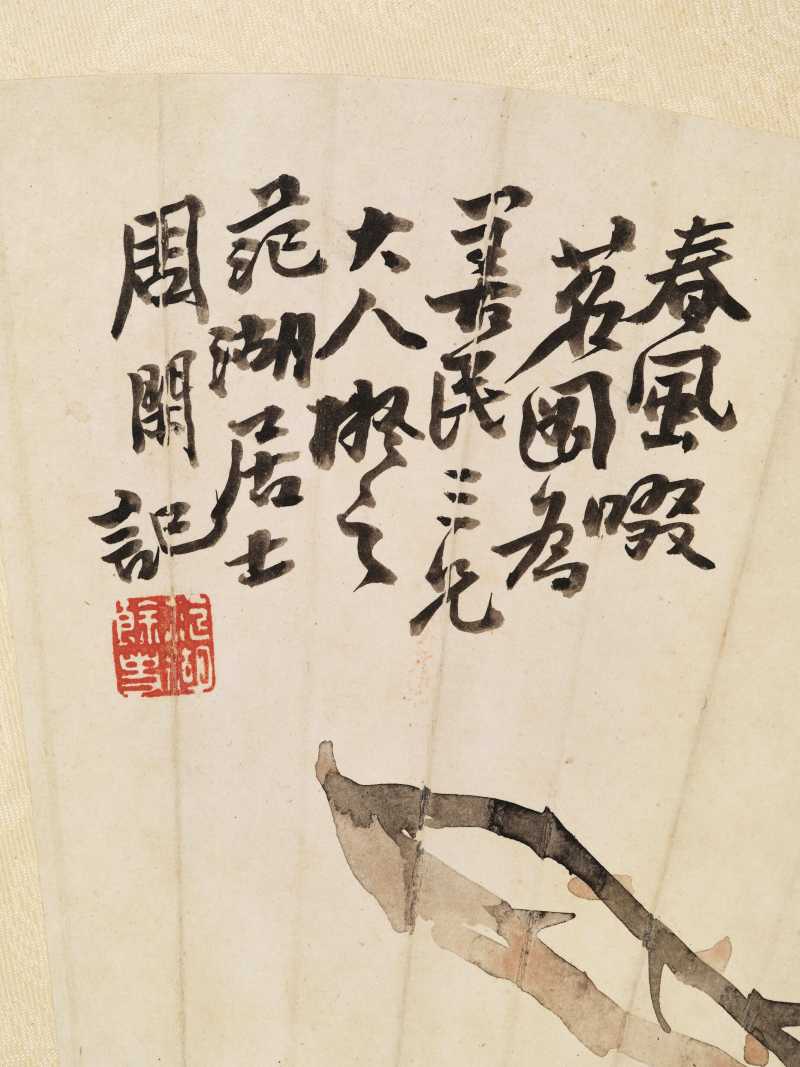 春風啜
茗圖為
善民三兄
大人擬之
范湖居士
周閑記
氾湖
餘事